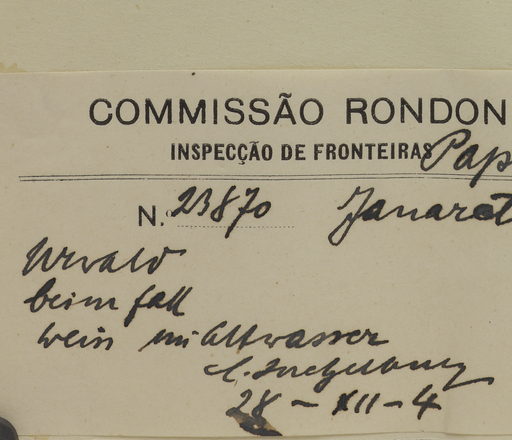 COMMISSÃO RONDON
INSPECÇÃO DE FRONTEIRAS Pap
N. 23870 Januaret
Urwald
beim fall
weiss im Altwasser
28 - XII - 4